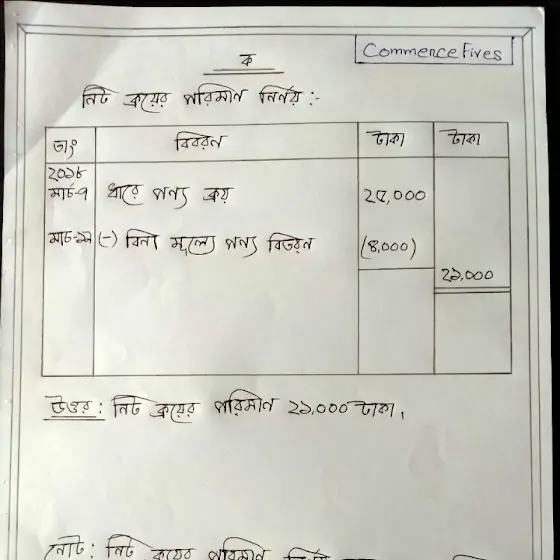 ক
Commence Fives
নিট ক্রয়ের পরিমান নির্নয় :-
তাং বিবরন টাকা টাকা
২০১৮
মার্চ-৭ ধারে পন্য ক্রয় ২৫,০০০
মার্চ-১৯ (-) বিনা মূল্যে পন্য বিতরন (৪,০০০)
২১,০০০
উত্তর : নিট ক্রয়ের পরিমান ২১,০০০ টাকা,
নোট : নিট ক্রয়ের পরিমান